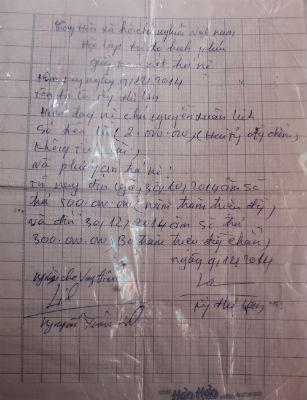 Cộng Hòa xã hội chủ nghĩa việt nam
Độc lập tự do hạnh phúc
giấy cam kết trả nợ
Hôm nay ngày 9/12/2014
Tên tôi là Lý Thị
Hiện nay nợ chú nguyễn xuân
Số tiền là 2.000.000, (Hai tỷ đồng chẵn)
không tính lãi,
và phải trả nợ:
Từ nay đến ngày 30/10/2014 âm sẽ
trả 500.000.000 (năm trăm triệu đồng)
và đến 30/12/2014 âm sẽ trả
300.000.000 (Ba trăm triệu đồng chẵn)
ngày 9/12/2014
người cho vay tiền
Lý Thị
nguyễn Xuân
Hòa Hòa